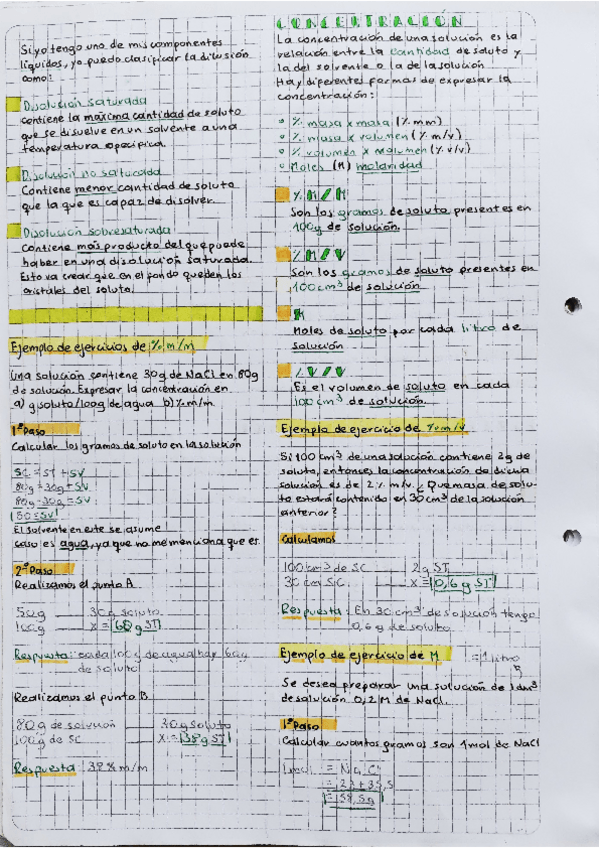 Si yo tengo uno de mis componentes
líquidos, yo puedo clasificar la dilusión
como:
Disolución saturada
contiene la máxima cantidad de soluto
que se disuelve en un solvente a una
temperatura especifica.
Disolución no saturada
Contiene menor cantidad de soluto
que la que es capaz de disolver.
Disolución sobresaturada
Contiene más producto del que puede
haber en una disolución saturada.
Esto va crear que en el fondo queden los
cristales del soluto.
Ejemplo de ejercicios de % m/m
Una solución contiene 30g de NaCl en 80g
de solución. Expresar la concentración en
a) g soluto/100g de agua b) % m/m
1º Paso
Calcular los gramos de soluto en la solución
SC = ST + SV
80g = 30g + SV
80g - 30g = SV
50 = SV
El solvente en este se asume
caso es agua, ya que no me menciona que es.
2º Paso
Realizamos el punto A
50g 30g soluto
100g x = 60g ST
Respuesta: cada 100g de agua hay 60g
de soluto
Realizamos el punto B
80g de solución 30g soluto
100g de SC x = 38g ST
Respuesta: 38% m/m
CONCENTRACIÓN
La concentración de una solución es la
relación entre la cantidad de soluto y
la del solvente o la de la solución
Hay diferentes formas de expresar la
concentración:
% masa x masa (% mm)
% masa x volumen (% m/v)
% volumen x volumen (% v/v)
Moles (M) molaridad
% M/M
Son los gramos de soluto presentes en
100g de solución.
% M/V
Son los gramos de soluto presentes en
100cm³ de solución
M
Moles de soluto por cada litro de
solución
% V/V
Es el volumen de soluto en cada
100cm³ de solución.
Ejemplo de ejercicio de % m/v
Si 100 cm³ de una solución contiene 2g de
soluto, entonces la concentración de dicha
solución es de 2% m/v. ¿Que masa de solu-
to estará contenido en 30cm³ de la solución
anterior?
Calculamos
100cm³ de SC 2g ST
30 cm SC x = 0,6 g ST
Respuesta: En 30 cm³ de solución tengo
0,6 g de soluto
Ejemplo de ejercicio de M = 1 litro
Se desea preparar una solución de 1 dm³
de solución 0,2 M de NaCl.
1º Paso
Calcular cuantos gramos son 1mol de NaCl
1mol = Na Cl
= 23 + 35,5
= 58,5g